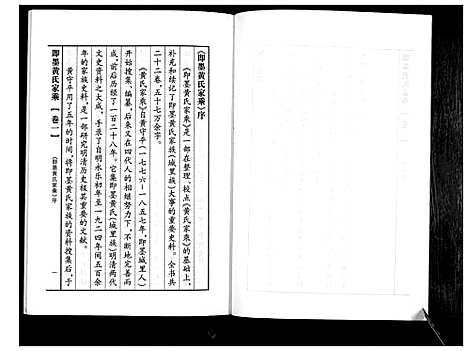 《即墨黄氏家乘》序
《即墨黄氏家乘》是一部在整理、校点《黄氏家乘》的基础上，
补充和续记了即墨黄氏家族（城里族）大事的重要史料。全书共
二十二卷，五十七万余字。
《黄氏家乘》自黄守平（一七七六—一八五七年，即墨城里人）
开始搜集、编纂，后来又在四代人的相继努力下，不断地完善而
成，前后历经了一百二十八年。它集即墨黄氏（城里族）明清两代
文史资料之大成，手录了自明永乐初年至一九二四年间五百余
年的家族史料，是一部研究明清历史极其重要的文献。
黄守平用了五年的时间，将即墨黄氏家族的资料搜集后，于
即墨黄氏家乘【卷一】
《即墨黄氏家乘》序
一